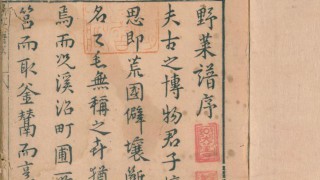 野菜譜序
夫古之博物君子
思即荒國僻壤斷
名之毛無稱之卉猶
焉而況溪沼町圃
筥而取釜鬵而